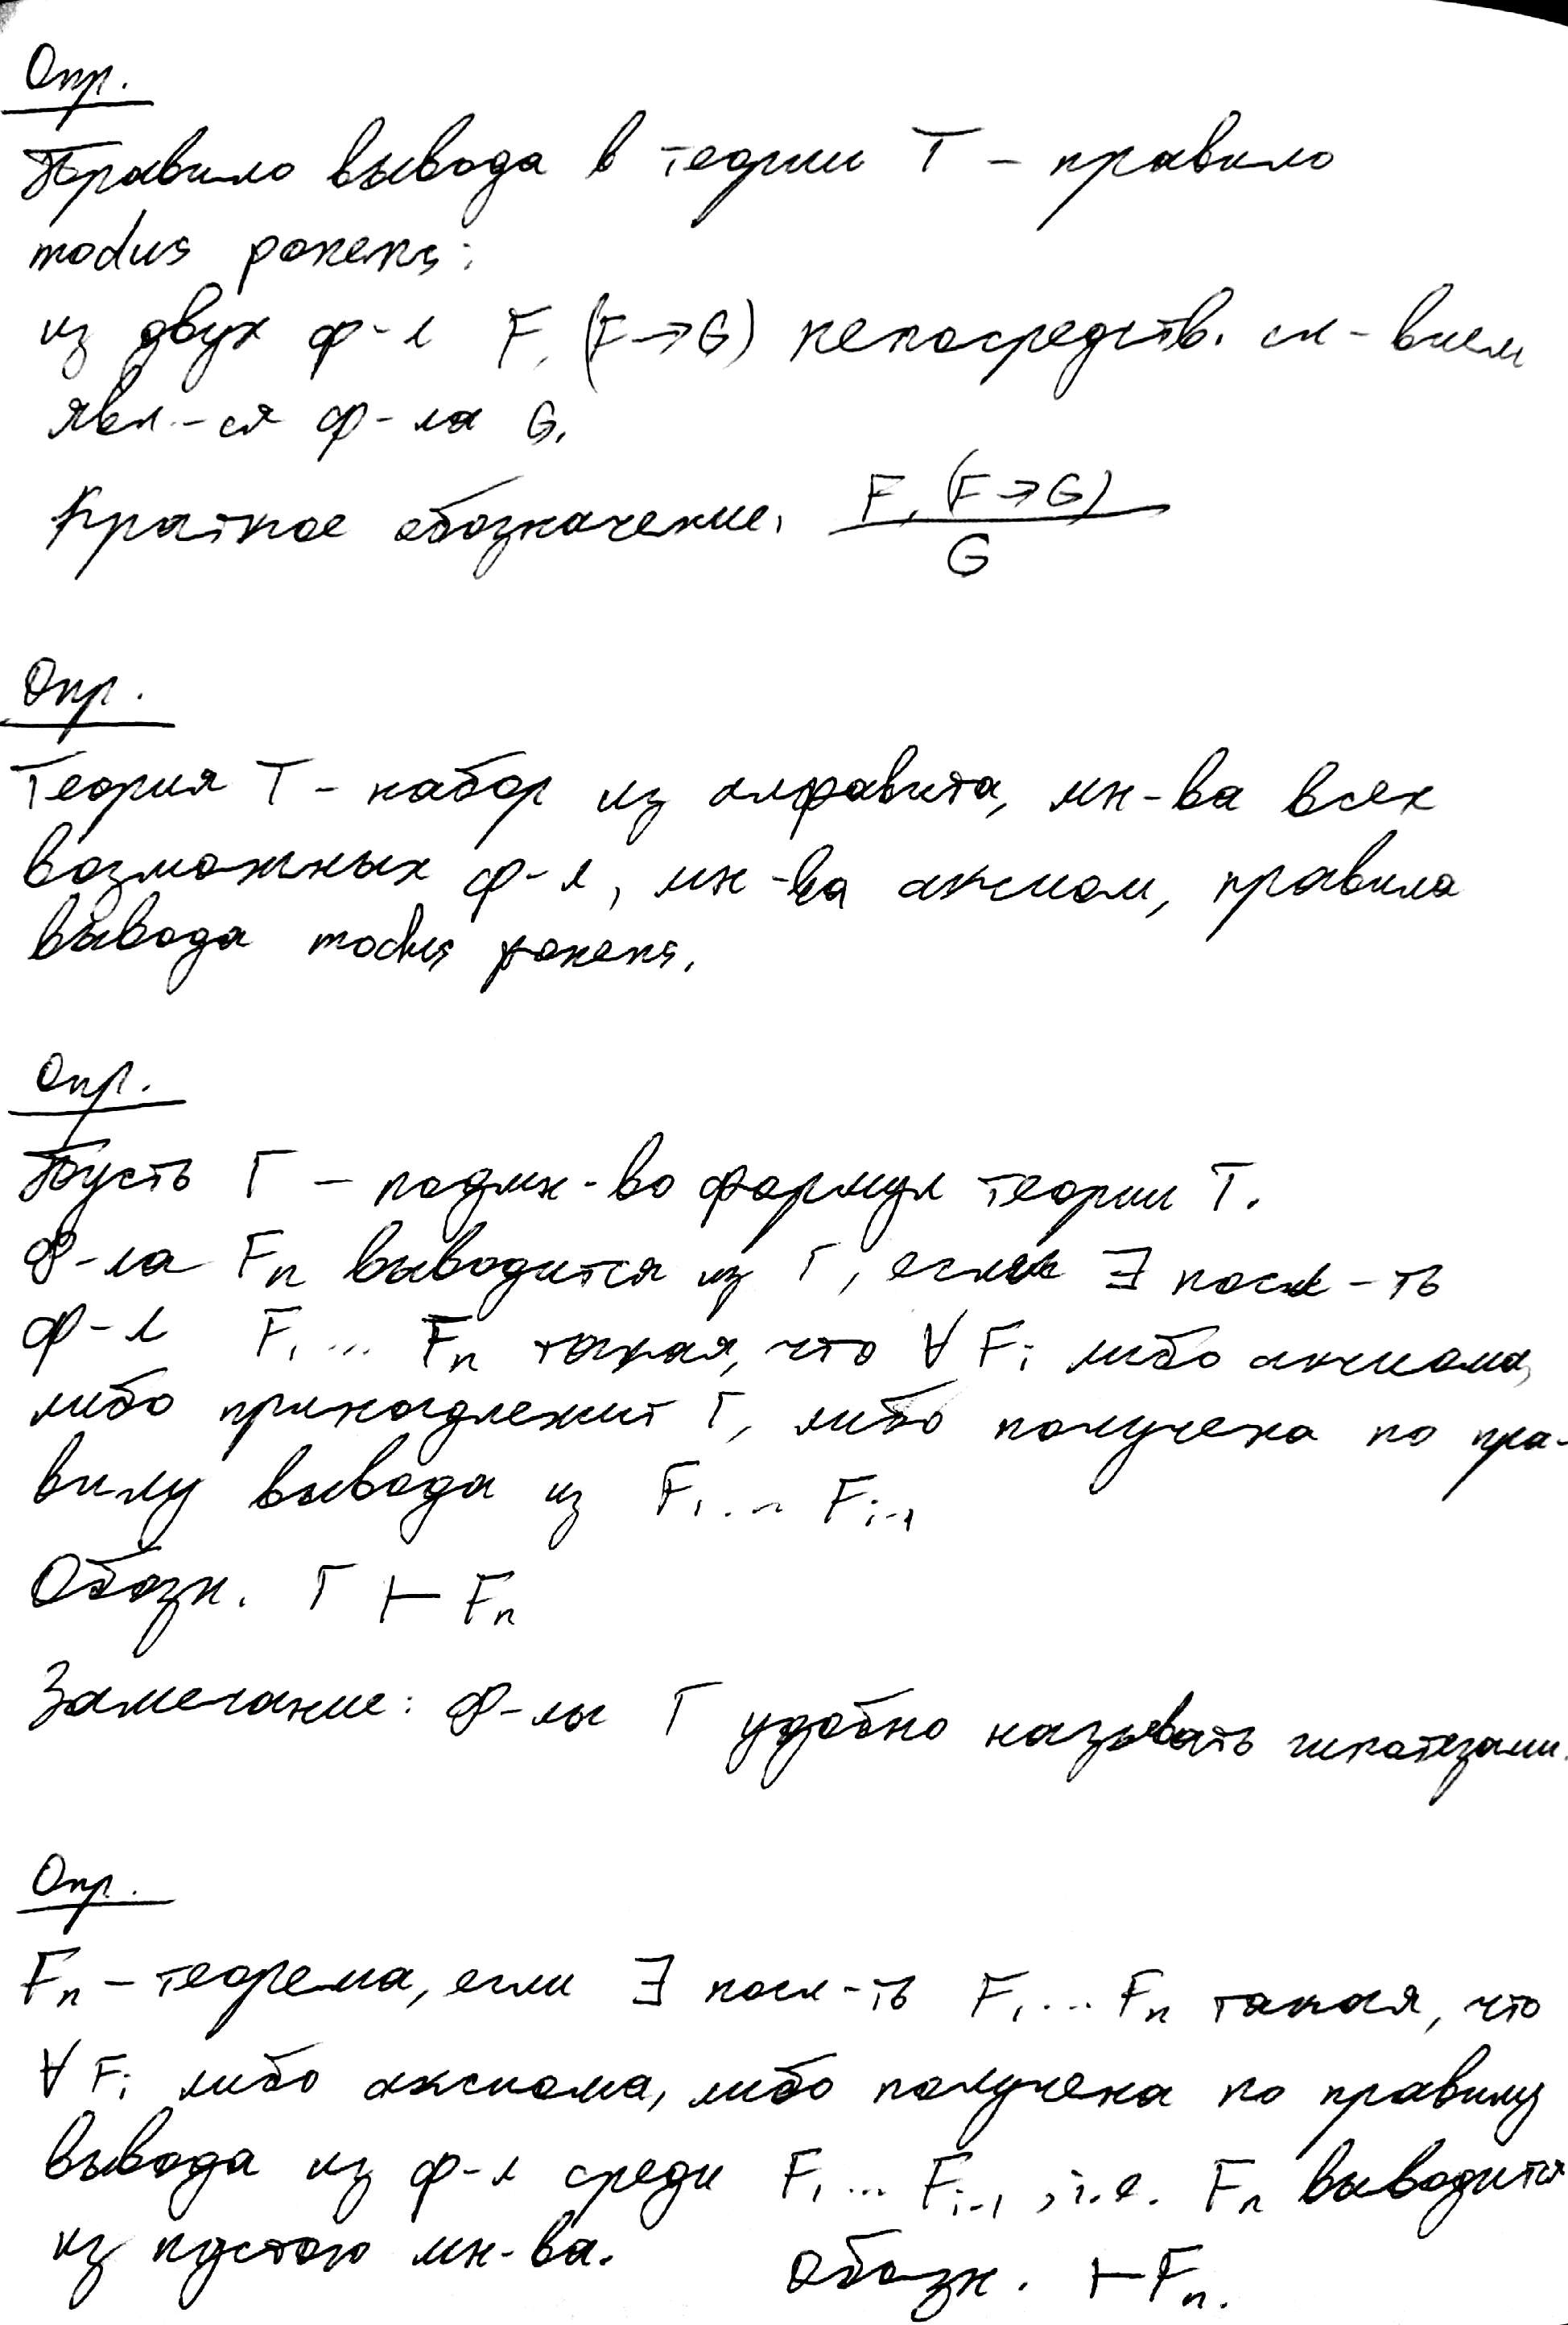 Опр.
Правило вывода в теории T – правило
modus ponens:
из двух ф-л F, (F→G) непосредств. сл-вием
явл.-ся ф-ла G.
Краткое обозначение. F, (F→G)
G
Опр.
Теория T – набор из алфавита, мн-ва всех
возможных ф-л, мн-ва аксиом, правила
вывода modus ponens.
Опр.
Пусть Г – подмн-во формул теории T.
Ф-ла Fₙ выводится из Г, если ∃ посл-ть
ф-л F₁ ... Fₙ такая, что ∀ Fᵢ либо аксиома,
либо принадлежит Г, либо получена по пра-
вилу вывода из F₁ ... Fᵢ₋₁
Обозн. Г ⊢ Fₙ
Замечание: Ф-лы Г удобно называть гипотезами.
Опр.
Fₙ – теорема, если ∃ посл-ть F₁ ... Fₙ такая, что
∀ Fᵢ либо аксиома, либо получена по правилу
вывода из ф-л среди F₁ ... Fᵢ₋₁, т.е. Fₙ выводится
из пустого мн-ва. Обозн. ⊢Fₙ.